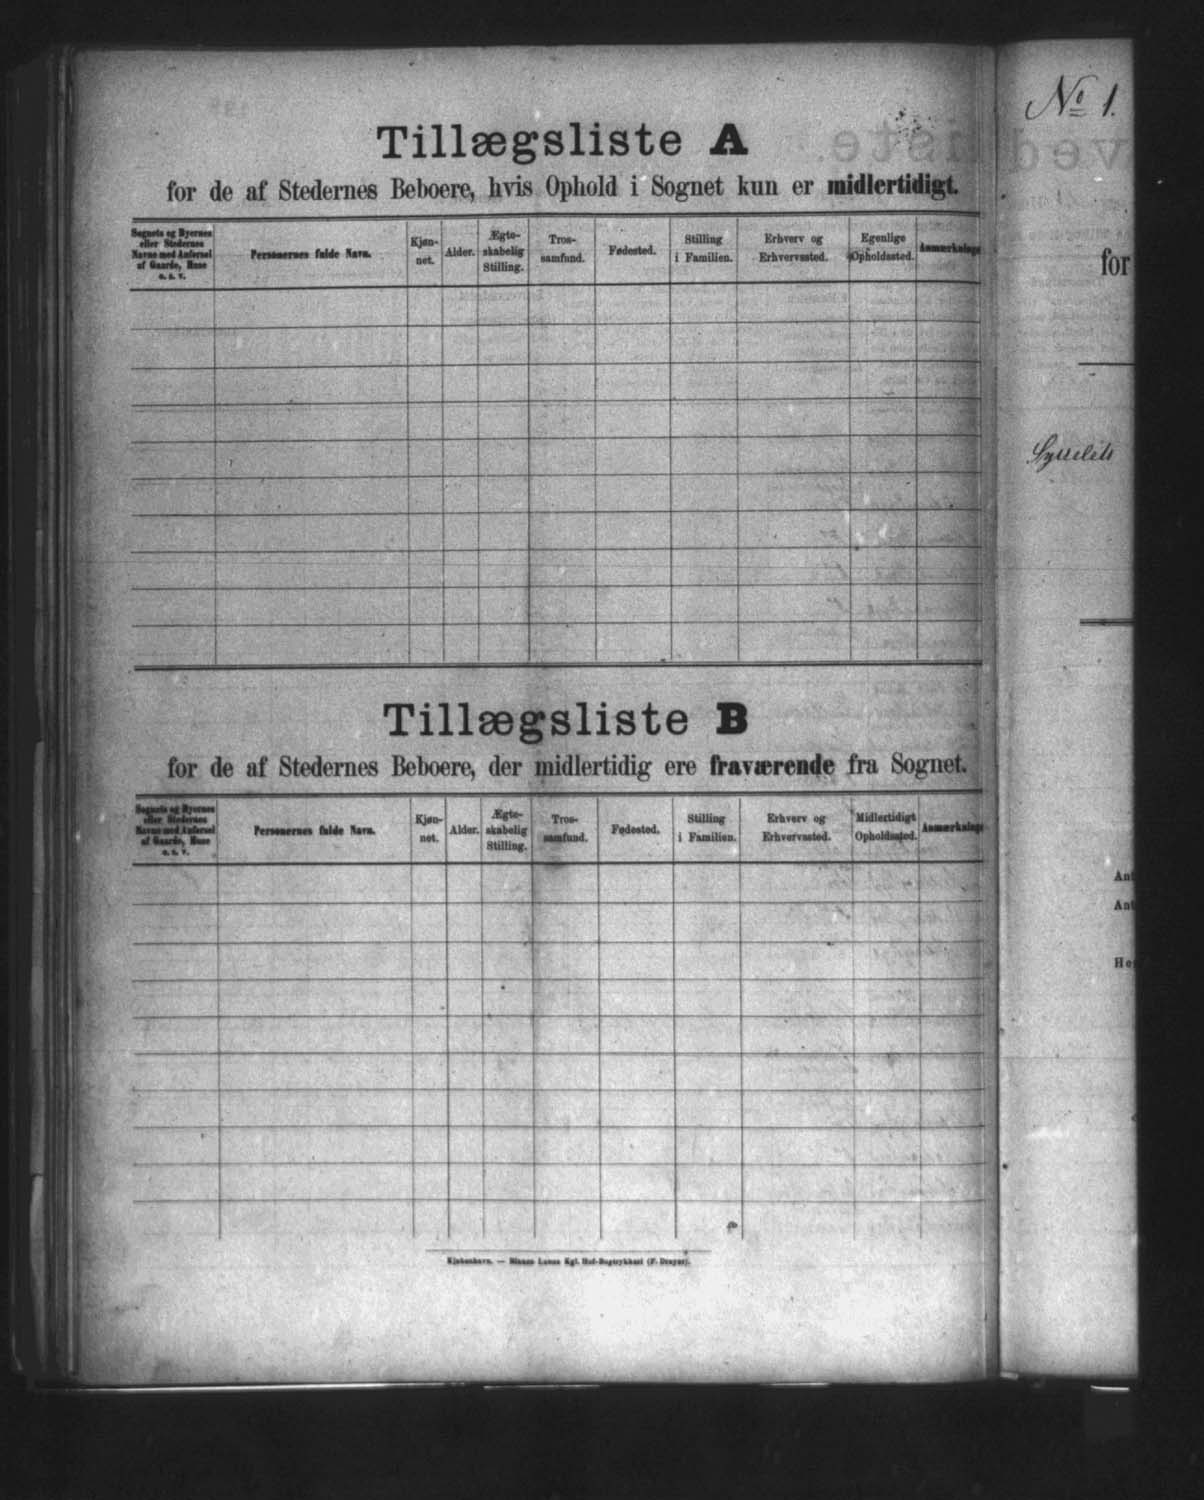 Tillægsliste A
for de af Stedernes Beboere, hvis Ophold i Sognet kun er midlertidigt.
Sognets og Byernes
eller Stedernes
Navne med Anførsel
af Gaarde, Huse
o. s. v.
Personernes fulde Navn.
Kjøn-
net.
Alder.
Ægte-
skabelig
Stilling.
Tros-
samfund.
Fødested.
Stilling
i Familien.
Erhverv og
Erhvervssted.
Egenlige
Opholdssted.
Anmærkninge
Tillægsliste B
for de af Stedernes Beboere, der midlertidig ere fraværende fra Sognet.
Sognets og Byernes
eller Stedernes
Navne med Anførsel
af Gaarde, Huse
o. s. v.
Personernes fulde Navn.
Kjøn-
net.
Alder.
Ægte-
skabelig
Stilling.
Tros-
samfund.
Fødested.
Stilling
i Familien.
Erhverv og
Erhvervssted.
Midlertidigt
Opholdssted.
Anmærkninge
Kjøbenhavn. — Bianco Lunos Kgl. Hof-Bogtrykkeri (F. Dreyer).
No 1.
for
Ant
Ant
He